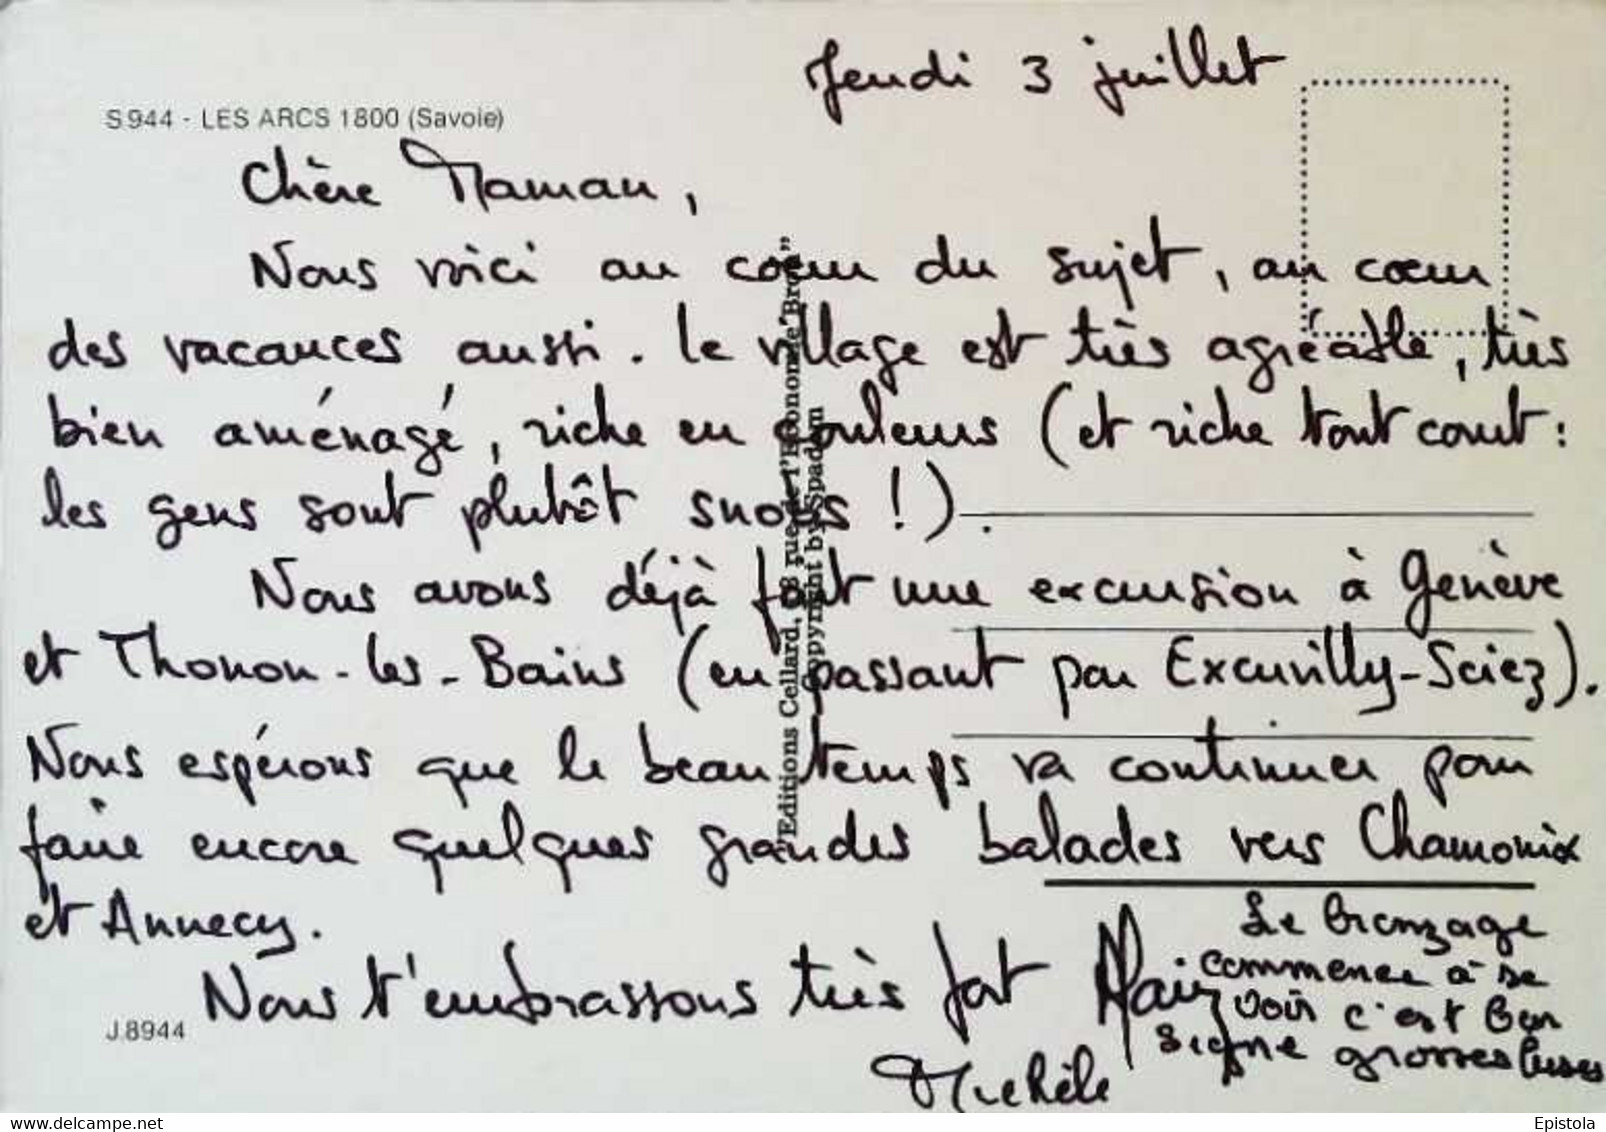 Jeudi 3 juillet
S944 - LES ARCS 1800 (Savoie)
Chère Maman,
Nous voici au coeur du sujet, au coeur
des vacances aussi. Le village est très agréable, très
bien aménagé, riche en couleurs (et riche tout court :
les gens sont plutôt snobs !).
Nous avons déjà fait une excursion à Genève
et Thonon-les-Bains (en passant par Excuvilly-Sciez).
Nous espérons que le beau temps va continuer pour
faire encore quelques grandes balades vers Chamonix
et Annecy.
Nous t'embrassons très fort
Alain
Michèle
Le bronzage
commence à se
voir c'est bon
signe grosses bises
"Editions Cellard, rue de l'Economie Bron"
Copyright by Spadem
J.8944
www.delcampe.net
Epistola